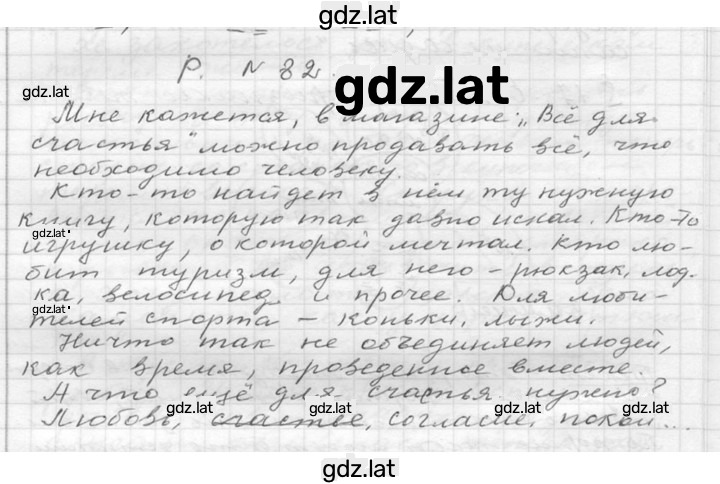 gdz.lat
Р. № 82.
gdz.lat
gdz.lat
gdz.lat
Мне кажется, в магазине „Всё для
счастья" можно продавать всё, что
gdz.lat
необходимо человеку.
gdz.lat
Кто-то найдет в нём ту нужную
книгу, которую так давно искал. Кто-то
gdz.lat
игрушку, о которой мечтал. Кто лю-
бит туризм, для него - рюкзак, лод-
ка, велосипед и прочее. Для люби-
gdz.lat
gdz.lat
телей спорта - коньки, лыжи.
Ничто так не объединяет людей,
как время, проведенное вместе.
gdz.lat
А что ещё для счастья нужно?
gdz.lat
Любовь, счастье, согласие, покой...
gdz.lat
gdz.lat
gdz.lat
gdz.lat